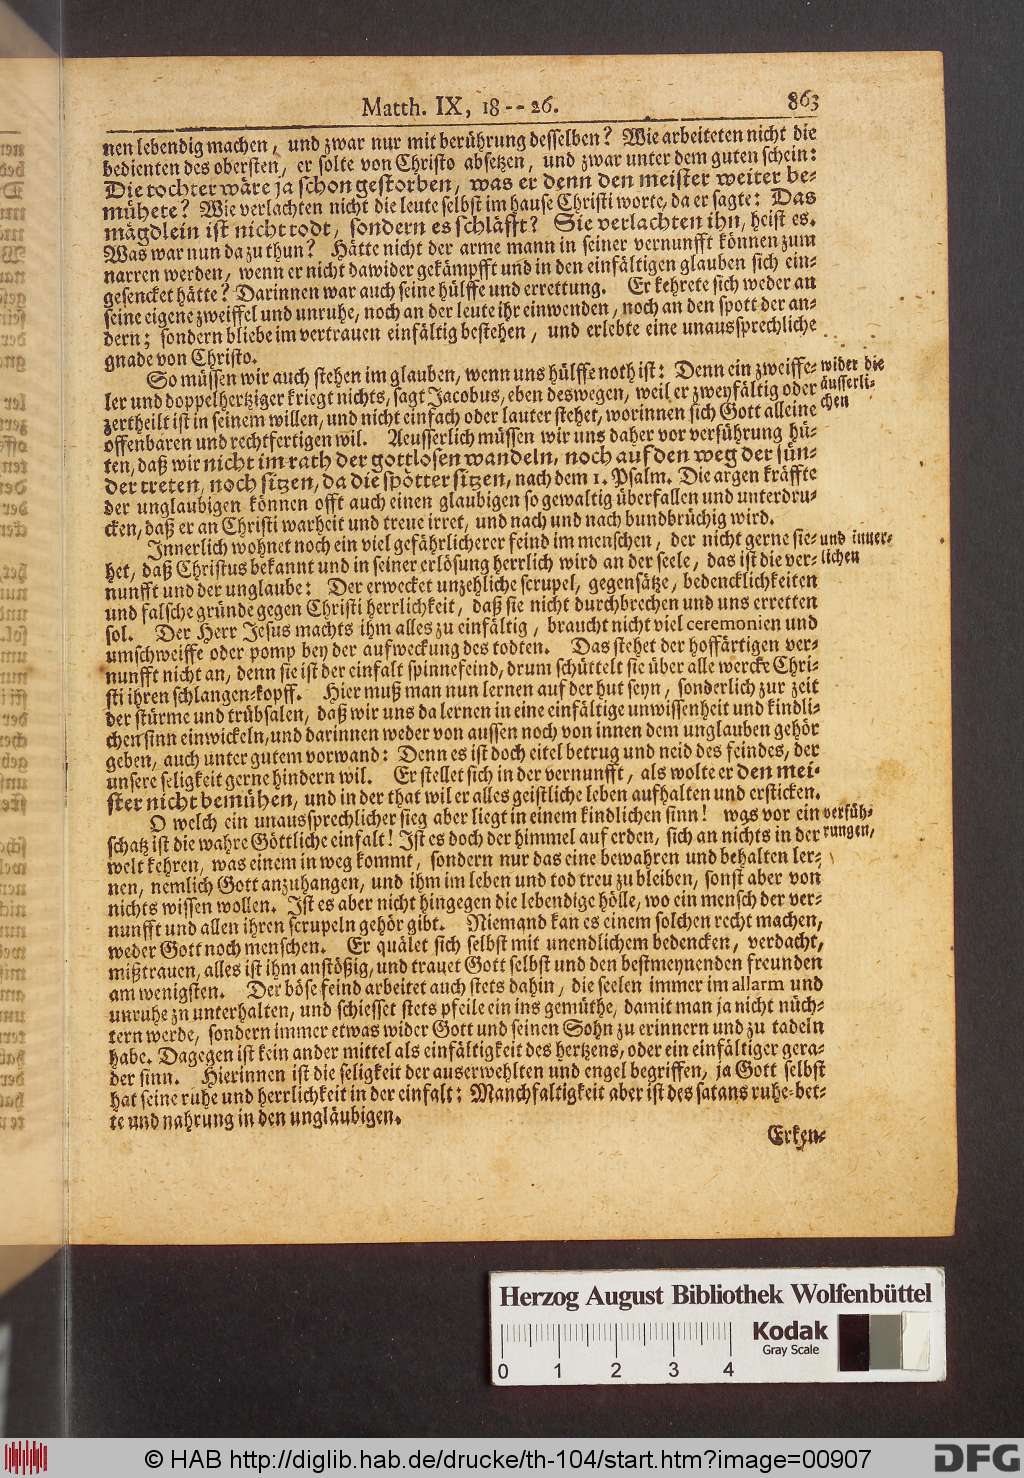 Matth. IX, 18 -- 26. 863
nen lebendig machen, und zwar nur mit berührung desselben? Wie arbeiteten nicht die
bedienten des obersten, er solte von Christo absetzen, und zwar unter dem guten schein:
Die tochter wäre ja schon gestorben, was er denn den meister weiter be-
mühete? Wie verlachten nicht die leute selbst im hause Christi worte, da er sagte: Das
mägdlein ist nicht todt, sondern es schläfft? Sie verlachten ihn, heist es.
Was war nun da zu thun? Hätte nicht der arme mann in seiner vernunfft können zum
narren werden, wenn er nicht dawider gekämpfft und in den einfältigen glauben sich ein-
gesencket hätte? Darinnen war auch seine hülffe und errettung. Er kehrete sich weder an
seine eigene zweiffel und unruhe, noch an der leute ihr einwenden, noch an den spott der an-
dern; sondern bliebe im vertrauen einfältig bestehen, und erlebte eine unaussprechliche
gnade von Christo.
So müssen wir auch stehen im glauben, wenn uns hülffe noth ist: Denn ein zweiffe-
ler und doppelhertziger kriegt nichts, sagt Jacobus, eben deswegen, weil er zweyfältig oder
zertheilt ist in seinem willen, und nicht einfach oder lauter stehet, worinnen sich Gott alleine
offenbaren und rechtfertigen wil. Aeusserlich müssen wir uns daher vor verführung hü-
ten, daß wir nicht im rath der gottlosen wandeln, noch auf den weg der sün-
der treten, noch sitzen, da die spötter sitzen, nach dem 1. Psalm. Die argen kräffte
der unglaubigen können offt auch einen glaubigen so gewaltig überfallen und unterdru-
cken, daß er an Christi warheit und treue irret, und nach und nach bundbrüchig wird.
wider die
äusserli-
chen
Innerlich wohnet noch ein viel gefährlicherer feind im menschen, der nicht gerne sie-
het, daß Christus bekannt und in seiner erlösung herrlich wird an der seele, das ist die ver-
nunfft und der unglaube: Der erwecket unzehliche scrupel, gegensätze, bedencklichkeiten
und falsche gründe gegen Christi herrlichkeit, daß sie nicht durchbrechen und uns erretten
sol. Der Herr Jesus machts ihm alles zu einfältig, braucht nicht viel ceremonien und
umschweiffe oder pomp bey der aufweckung des todten. Das stehet der hoffärtigen ver-
nunfft nicht an, denn sie ist der einfalt spinnefeind, drum schüttelt sie über alle wercke Chri-
sti ihren schlangen-kopff. Hier muß man nun lernen auf der hut seyn, sonderlich zur zeit
der stürme und trübsalen, daß wir uns da lernen in eine einfältige unwissenheit und kindli-
chen sinn einwickeln, und darinnen weder von aussen noch von innen dem unglauben gehör
geben, auch unter gutem vorwand: Denn es ist doch eitel betrug und neid des feindes, der
unsere seligkeit gerne hindern wil. Er stellet sich in der vernunfft, als wolte er den mei-
ster nicht bemühen, und in der that wil er alles geistliche leben aufhalten und ersticken.
und inner-
lichen
O welch ein unaussprechlicher sieg aber liegt in einem kindlichen sinn! was vor ein
schatz ist die wahre Göttliche einfalt! Ist es doch der himmel auf erden, sich an nichts in der
welt kehren, was einem in weg kommt, sondern nur das eine bewahren und behalten ler-
nen, nemlich Gott anzuhangen, und ihm im leben und tod treu zu bleiben, sonst aber von
nichts wissen wollen. Ist es aber nicht hingegen die lebendige hölle, wo ein mensch der ver-
nunfft und allen ihren scrupeln gehör gibt. Niemand kan es einem solchen recht machen,
weder Gott noch menschen. Er quälet sich selbst mit unendlichem bedencken, verdacht,
mißtrauen, alles ist ihm anstößig, und trauet Gott selbst und den bestmeynenden freunden
am wenigsten. Der böse feind arbeitet auch stets dahin, die seelen immer im allarm und
unruhe zu unterhalten, und schiesset stets pfeile ein ins gemüthe, damit man ja nicht nüch-
tern werde, sondern immer etwas wider Gott und seinen Sohn zu erinnern und zu tadeln
habe. Dagegen ist kein ander mittel als einfältigkeit des hertzens, oder ein einfältiger gera-
der sinn. Hierinnen ist die seligkeit der auserwehlten und engel begriffen, ja Gott selbst
hat seine ruhe und herrlichkeit in der einfalt: Manchfaltigkeit aber ist des satans ruhe-bet-
te und nahrung in den ungläubigen.
verfüh-
rungen,
Erken-
Herzog August Bibliothek Wolfenbüttel
Kodak
Gray Scale
0 1 2 3 4
© HAB http://diglib.hab.de/drucke/th-104/start.htm?image=00907
DFG